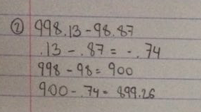 ② 998.13-98.87
.13-.87=-.74
998-98=900
900-.74=899.26